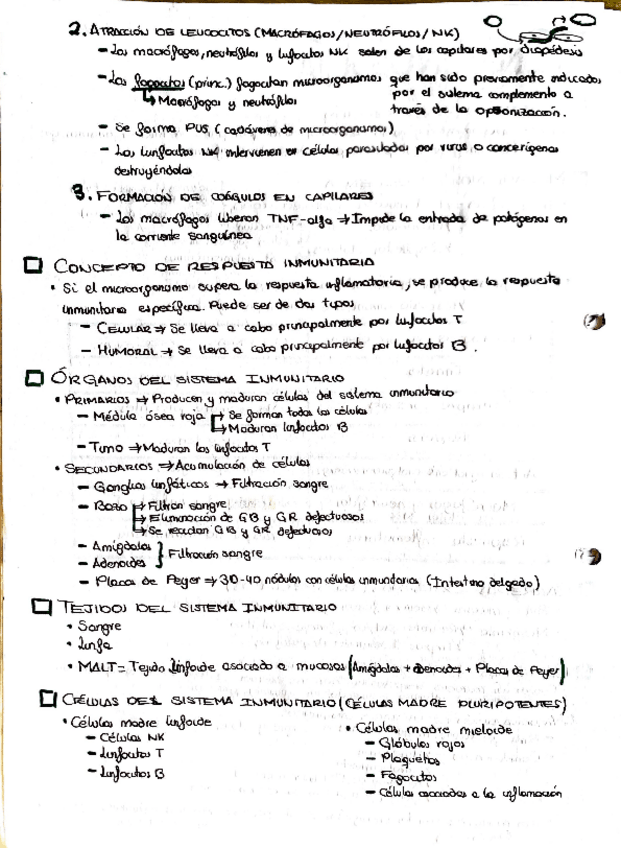 2. ATRACCIÓN DE LEUCOCITOS (MACRÓFAGOS/NEUTRÓFILOS/NK)
- Los macrófagos, neutrófilos y linfocitos NK salen de los capilares por diapédesis
- Los fagocitos (princ.) fagocitan microorganismos que han sido previamente indicados
↳ Macrófagos y neutrófilos
por el sistema complemento a
través de la opsonización.
- Se forma PUS (cadáveres de microorganismos)
- Los linfocitos NK intervienen en células parasitadas por virus o cancerígenas
destruyéndolas
3. FORMACIÓN DE COÁGULOS EN CAPILARES
- Los macrófagos liberan TNF-alfa ⇒ Impide la entrada de patógenos en
la corriente sanguínea
CONCEPTO DE RESPUESTA INMUNITARIA
• Si el microorganismo supera la respuesta inflamatoria, se produce la respuesta
inmunitaria específica. Puede ser de dos tipos
- CELULAR ⇒ Se lleva a cabo principalmente por linfocitos T
- HUMORAL ⇒ Se lleva a cabo principalmente por linfocitos B.
ÓRGANOS DEL SISTEMA INMUNITARIO
• PRIMARIOS ⇒ Producen y maduran células del sistema inmunitario
- Médula ósea roja → Se forman todas las células
→ Maduran linfocitos B
- Timo ⇒ Maduran los linfocitos T
• SECUNDARIOS ⇒ Acumulación de células
- Ganglios linfáticos → Filtración sangre
- Bazo → Filtran sangre
→ Eliminación de GB y GR defectuosos
→ Se reciclan GB y GR defectuosos
- Amígdalas } Filtración sangre
- Adenoides
- Placas de Peyer ⇒ 30-40 nódulos con células inmunitarias (Intestino delgado)
TEJIDOS DEL SISTEMA INMUNITARIO
• Sangre
• Linfa
• MALT = Tejido linfoide asociado a mucosas (Amígdalas + adenoides + Placas de Peyer)
CÉLULAS DEL SISTEMA INMUNITARIO (CÉLULAS MADRE PLURIPOTENTES)
• Células madre linfoide
- Células NK
- Linfocitos T
- Linfocitos B
• Células madre mieloide
- Glóbulos rojos
- Plaquetas
- Fagocitos
- Células asociadas a la inflamación